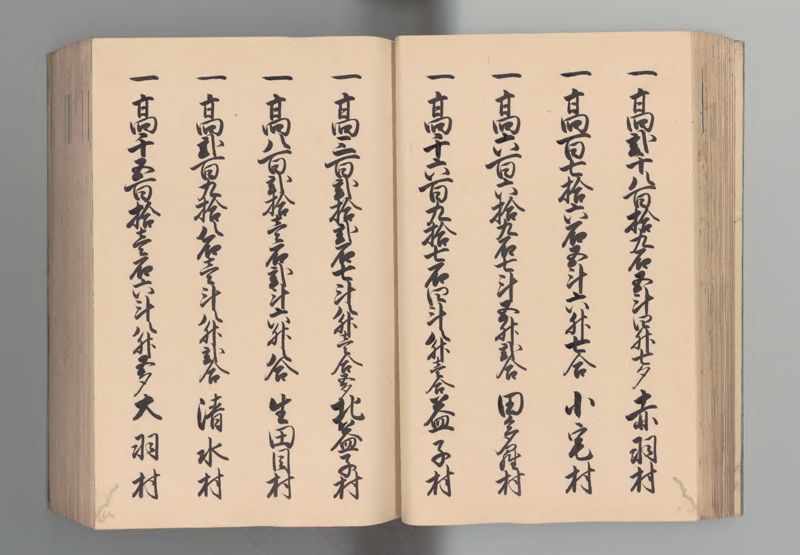 一高弐千八百拾九石五斗四升七夕赤羽村
一高百七拾六石五斗六升七合小宅村
一高六百六拾九石七斗五升弐合田野辺村
一高千六百九拾七石四斗八升壱合益子村
一高三百弐拾弐石七斗八升壱合五夕北益子村
一高八百弐拾壱石弐斗六升八合生田目村
一高弐百九拾八石壱斗八升弐合清水村
一高千五百拾壱石六斗八升五夕大羽村